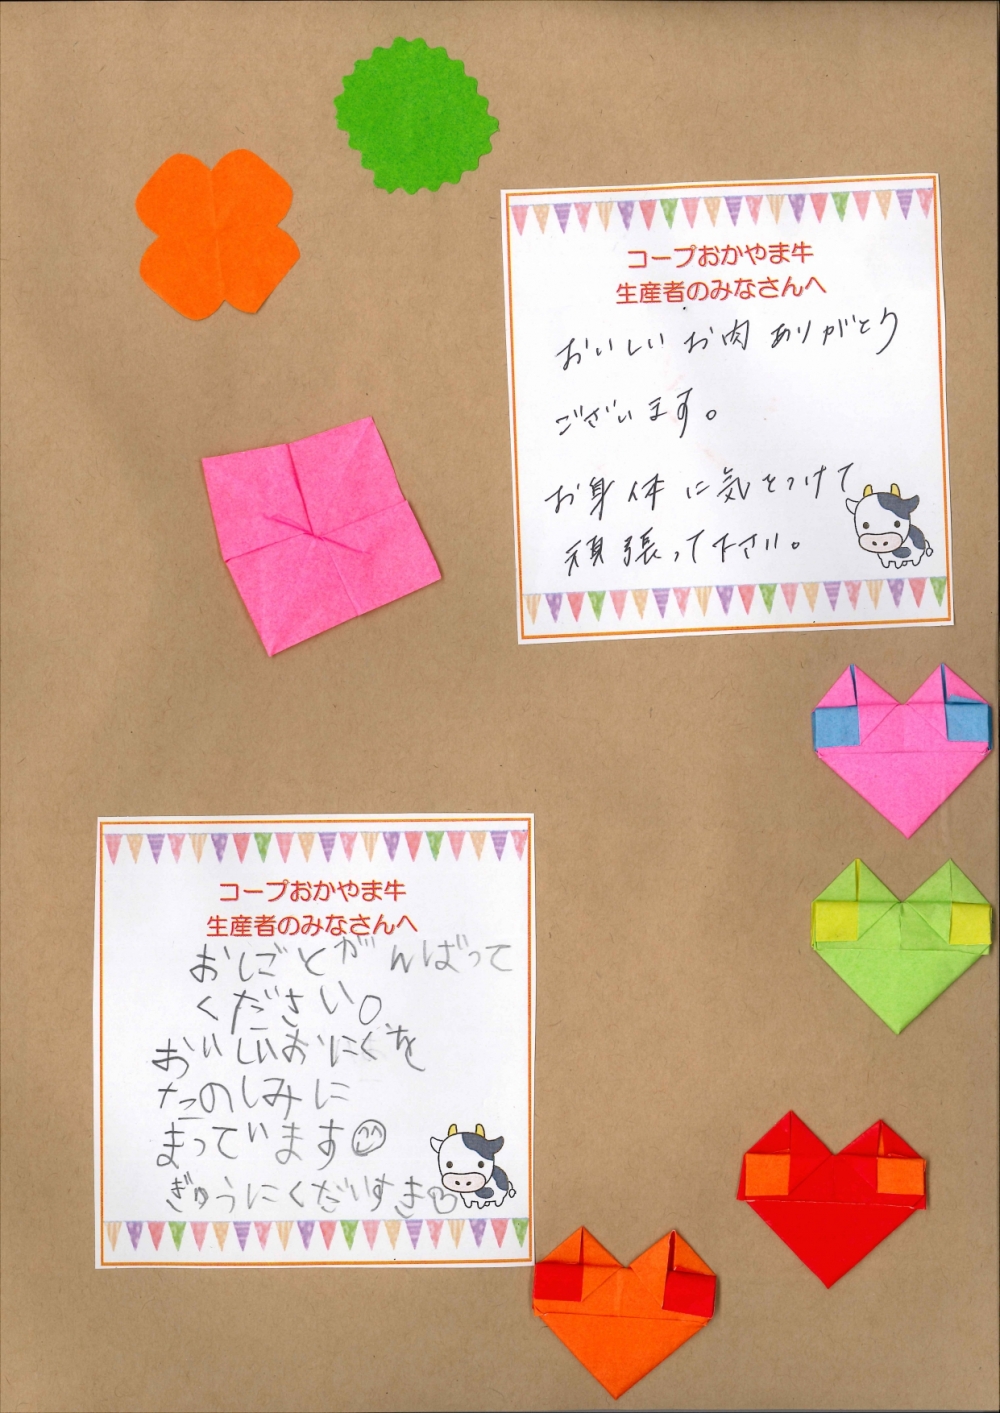 コープおかやま牛
生産者のみなさんへ
おいしいお肉ありがとう
ございます。
お身体に気をつけて
頑張って下さい。
コープおかやま牛
生産者のみなさんへ
おしごとがんばって
ください。
おいしいおにくを
たのしみに
まっています
ぎゅうにくだいすき